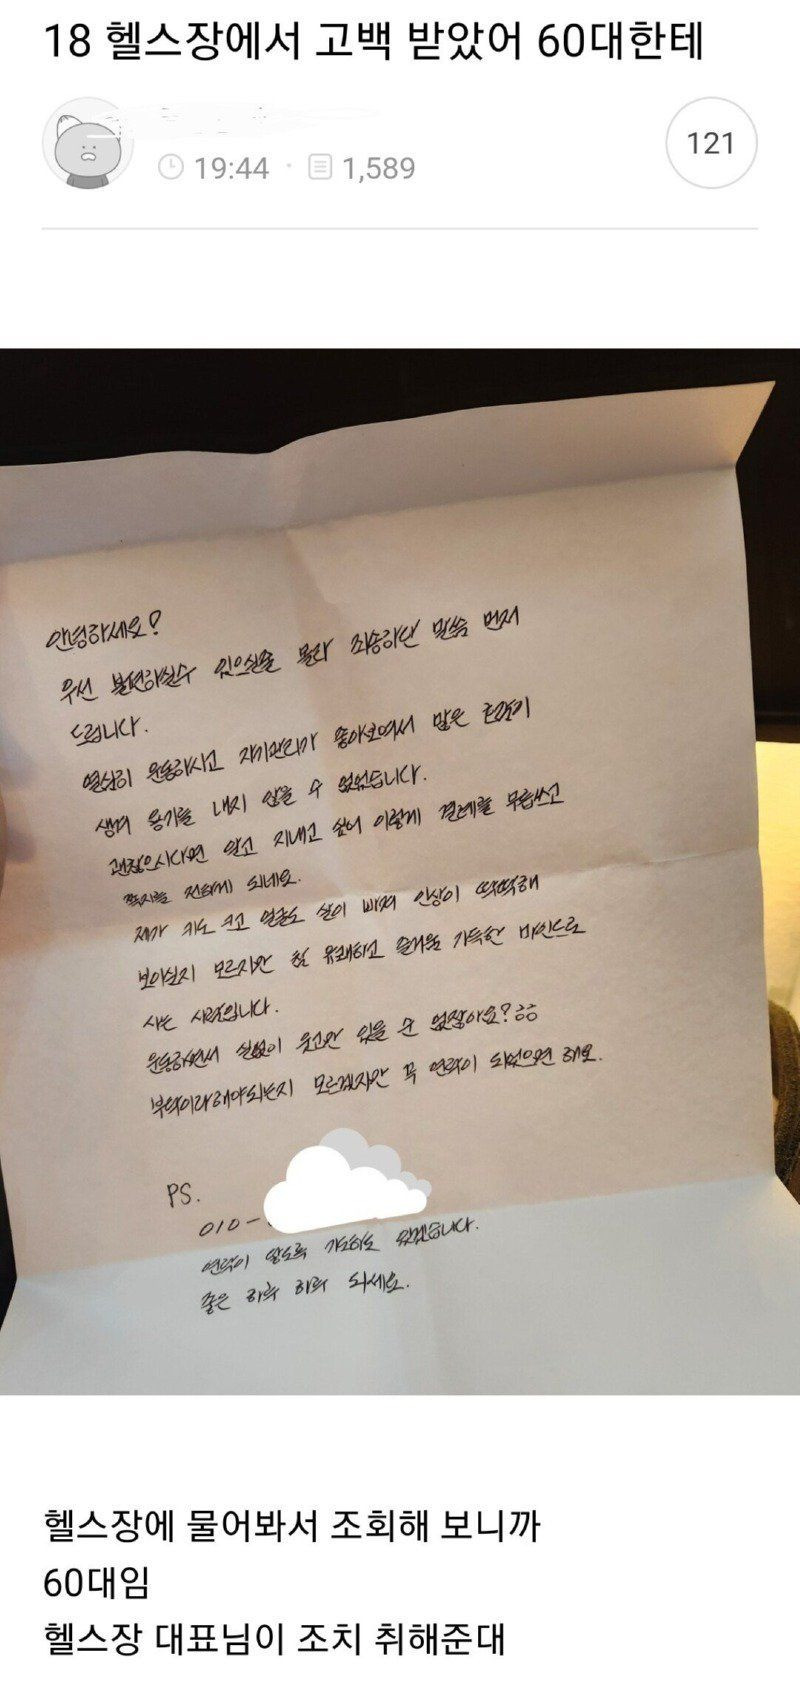 18 헬스장에서 고백 받았어 60대한테
19:44 · 1,589
121
안녕하세요?
우선 불편하실수 있으실줄 몰라 죄송하단 말씀 먼저
드립니다.
열심히 운동하시고 자기관리가 좋아보여서 많은
생겨 용기를 내지 않을 수 없었습니다.
괜찮으시다면 알고 지내고 싶어 이렇게 결례를 무릅쓰고
쪽지를 전하게 되네요.
제가 키도 크고 얼굴도 살이 빠져 인상이 딱딱해
보이실지 모르지만 참 유쾌하고 즐거움 가득한 마인드로
사는 사람입니다.
운동하면서 실없이 웃고만 있을 순 없잖아요?ㅎㅎ
부탁이라해야되는지 모르겠지만 꼭 연락이 되었으면 해요.
PS.
010-
연락이 닿도록 기도하고 있겠습니다.
좋은 하루 하루 되세요.
헬스장에 물어봐서 조회해 보니까
60대임
헬스장 대표님이 조치 취해준대